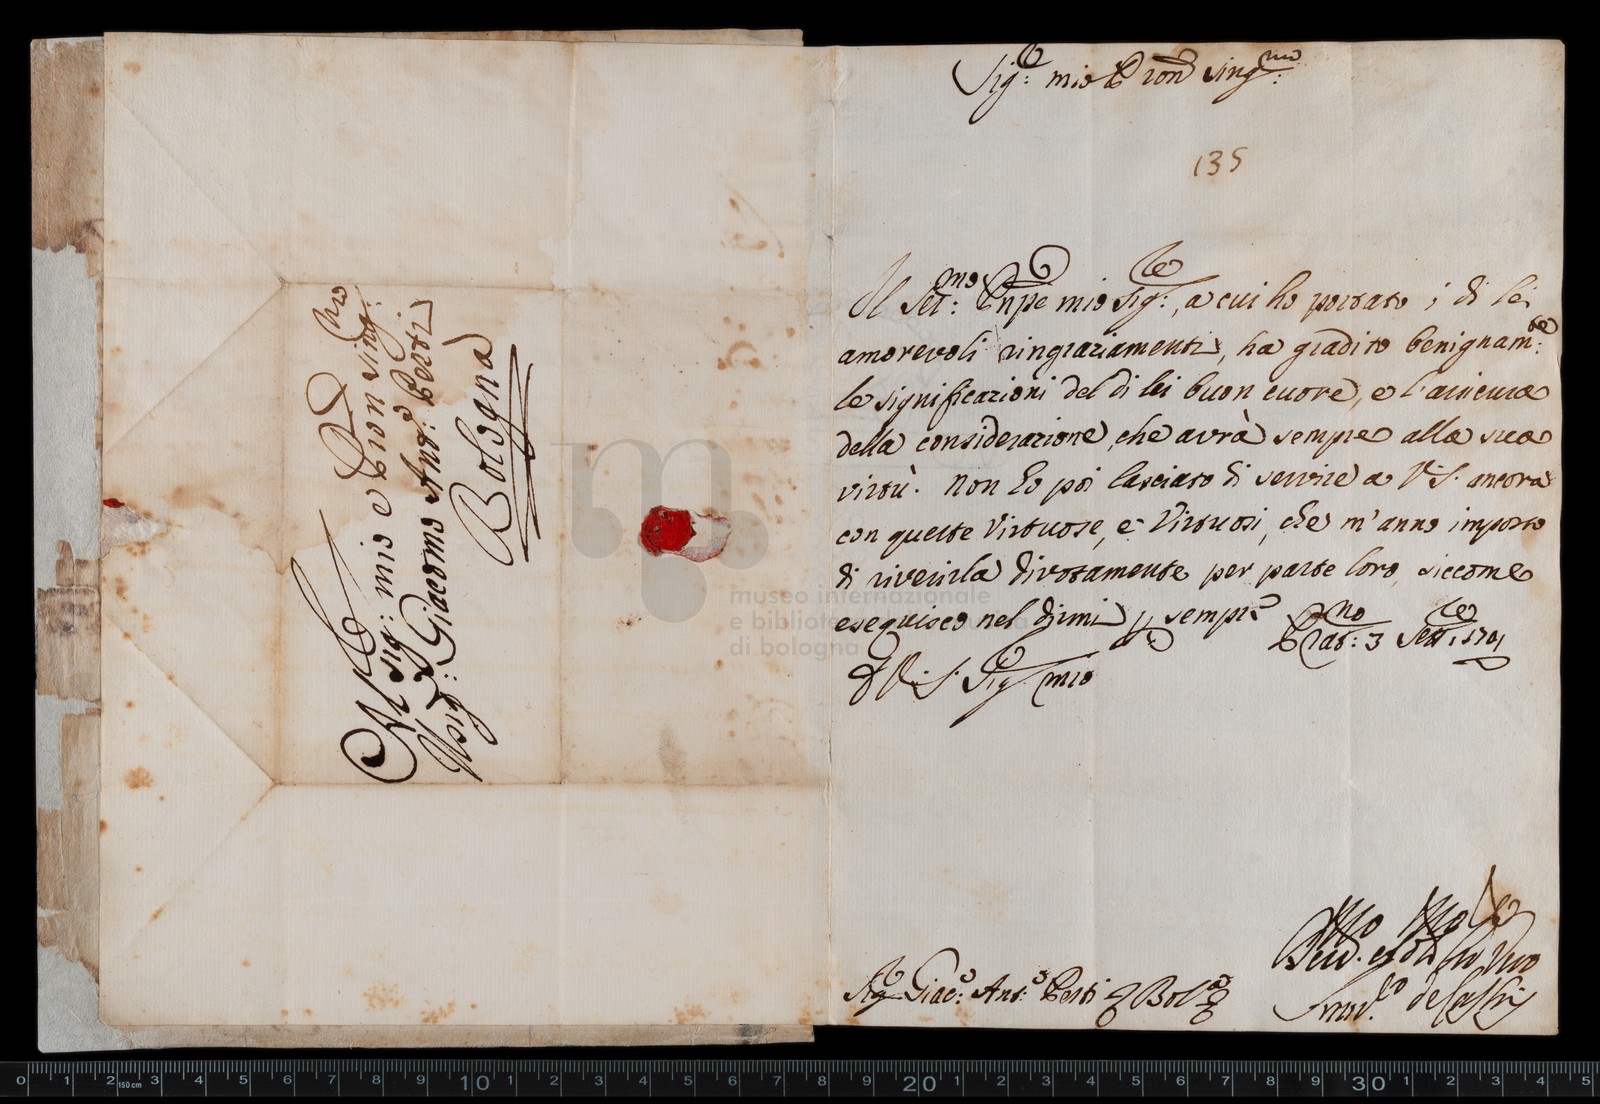 Al Sig:re mio e Pron Sing:mo
Il Sig: Giacomo Ant:o Perti
Bologna
Sig:re mio Pron Sing:mo
135
Il Ser:mo Pnpe mio Sig:re, a cui ho portato i di lei
amorevoli ringraziamenti, ha gradito benignam:te
le significazioni del di lei buon cuore, e l'assicura
della considerazione, che avrà sempre alla sua
virtù. Non ho poi lasciato di servire a V.S. ancora
con queste Virtuose, e Virtuosi, che m'anno imposto
di riverirla divotamente per parte loro, siccome
eseguisco nel dirmi sempre
Prat:no 3 Sett:re 1701
D V.S. Sig:re mio
Sig:r Giac:o Ant:o Perti Bol:a
museo internazionale
e biblioteca della musica
di bologna
0 1 2 150 cm 3 4 5 6 7 8 9 10 1 2 3 4 5 6 7 8 9 20 1 2 3 4 5 6 7 8 9 30 1 2 3 4 5